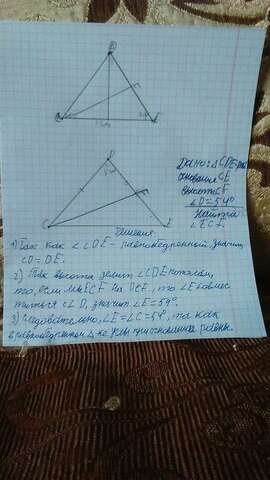 D
C
E
D
54°
C
E
Дано: △CDE-рав
основание CE
высота CF
∠D=54°
Найти
∠ECF.
Решение
1) Так как ∠CDE - равнобедренный, значит
CD=DE.
2) Так высота делит ∠CDE пополам,
то, если мы ECF на DCE, то ∠E совмес
титься с ∠D, значит ∠E=54°.
3) Следовательно, ∠E=∠C=54°, та как
в равнобедренном △-ке углы при основании равны.